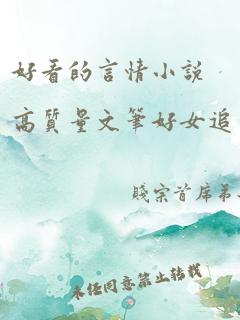 好看的言情小說
高質量文筆好女追
賤宗首席弟
未经同意禁止转载